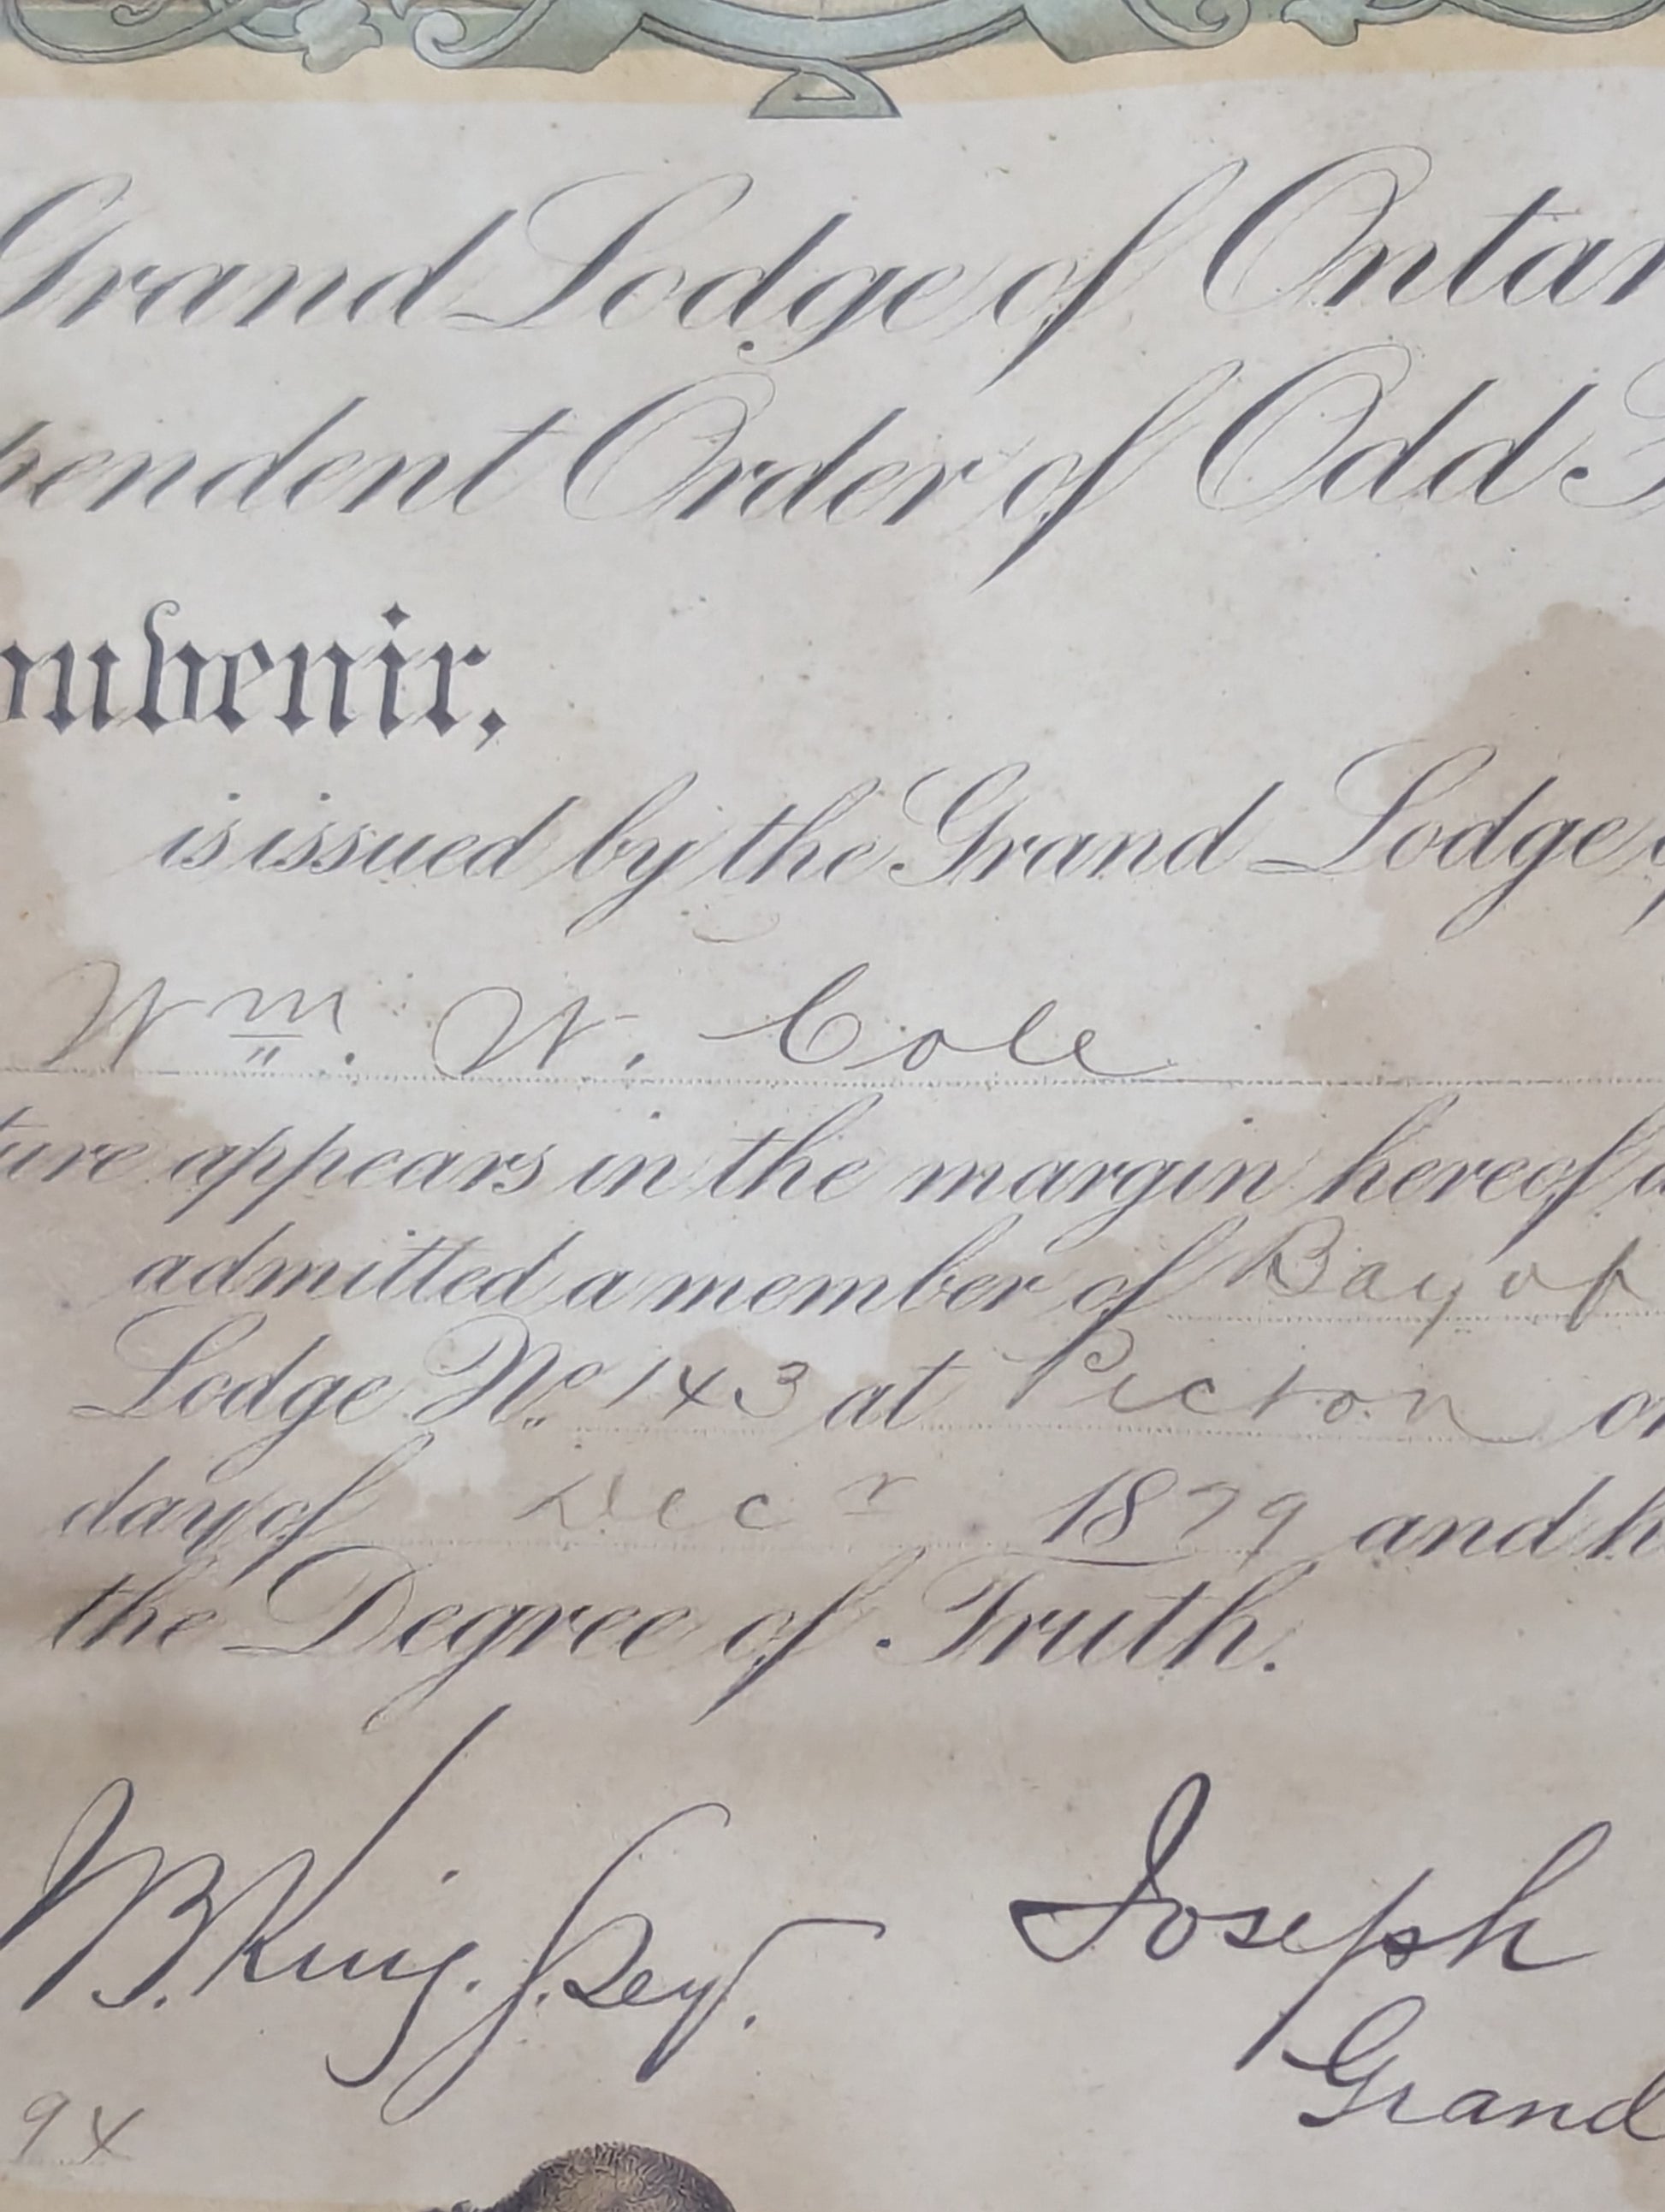 Grand Lodge of Ontar
pendent Order of Odd F
ouvenir,
is issued by the Grand Lodge o
Wm. W. Cole
ture appears in the margin hereof a
admitted a member of Bay of
Lodge No. 143 at Picton on
day of Decr 1879 and h
the Degree of Truth.
J B. King. G. Secy. Joseph
Grand
94